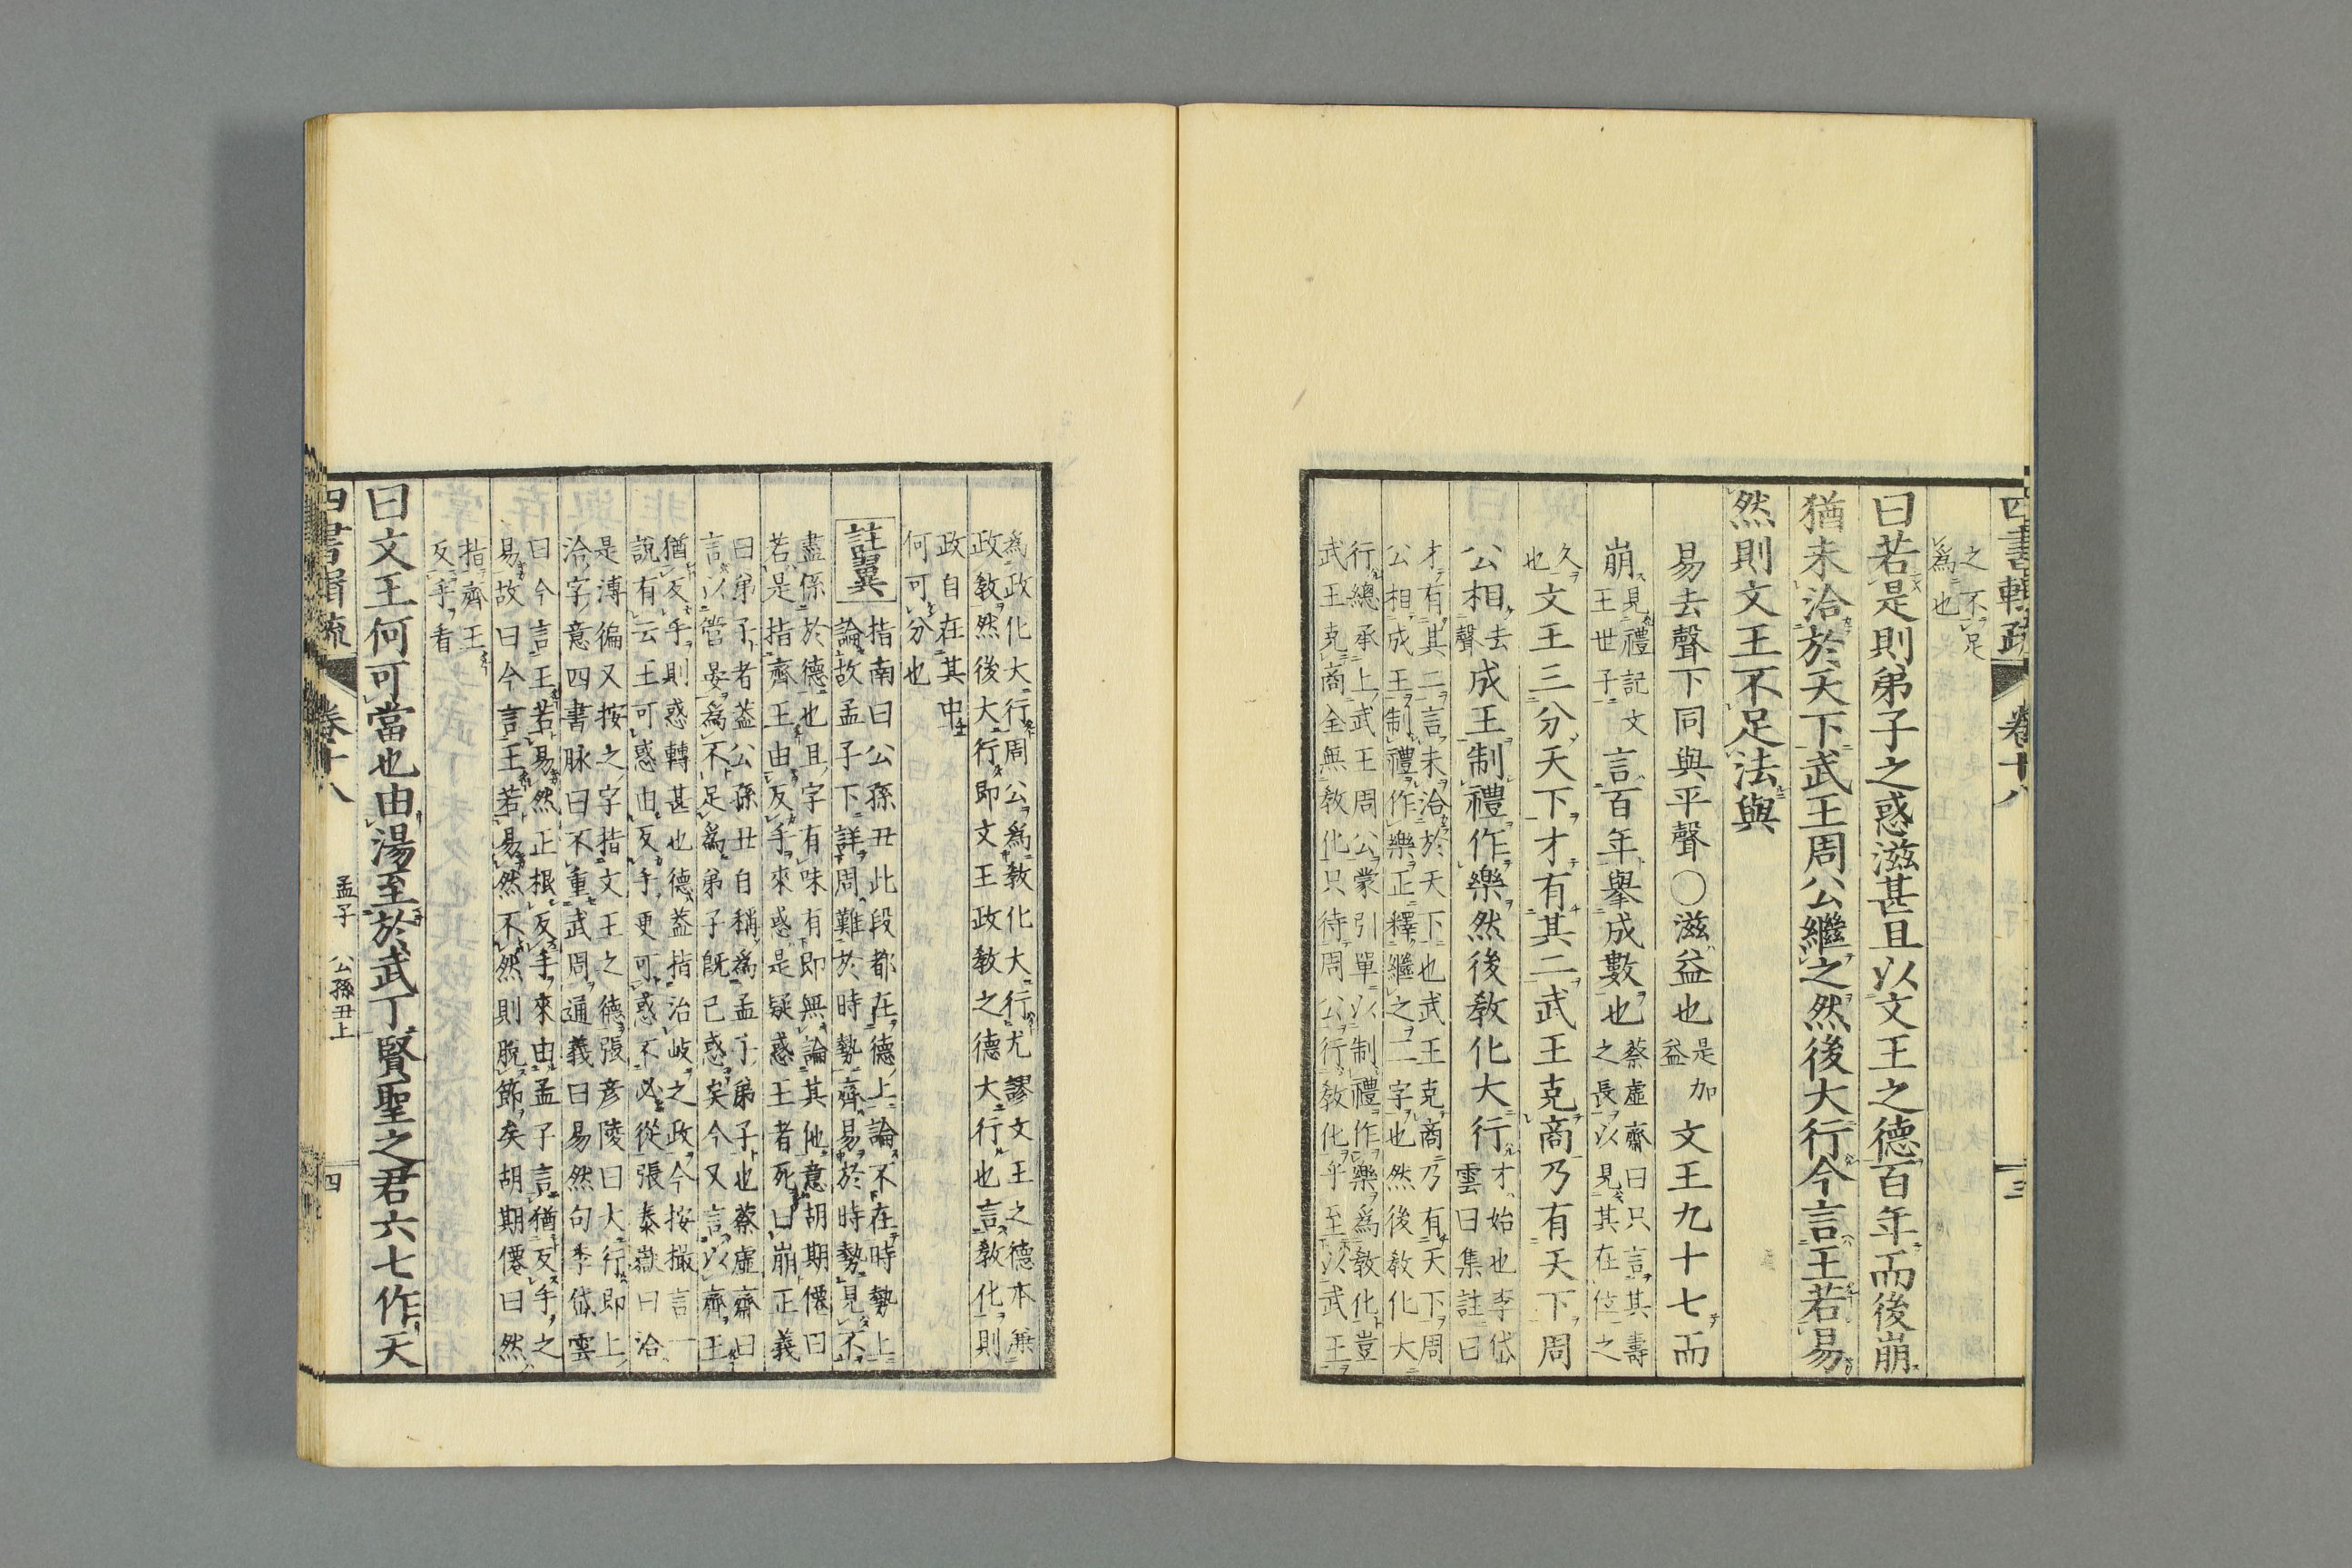 四書輯疏 卷十八 三
之不足
為也
曰若是則弟子之惑滋甚且以文王之德百年而後崩
猶未洽於天下武王周公繼之然後大行今言王若易
然則文王不足法與
易去聲下同與平聲〇滋益也是加益文王九十七而
崩見禮記文王世子言百年擧成數也蔡虛齋曰只言其壽之長以見其在位之
久也文王三分天下才有其二武王克商乃有天下周
公相去聲成王制禮作樂然後敎化大行才始也李岱雲曰集註曰
才有其二言未洽於天下也武王克商乃有天下周
公相成王制禮作樂正釋繼之二字也然後敎化大
行總承上武王周公蒙引單以制禮作樂為敎化豈
武王克商全無敎化只待周公行敎化乎至以武王
為政化大行周公為敎化大行尤謬文王之德本兼
政敎然後大行即文王政敎之德大行也言敎化則
政自在其中
何可分也
註翼
指南曰公孫丑此段都在德上論不在時勢上
論故孟子下詳周難於時勢齊易於時勢見不
盡係於德也且字有味有即無論其他意胡期僊曰
若是指齊王由反手來惑是疑惑王者死曰崩正義
曰弟子者蓋公孫丑自稱為孟子弟子也蔡虛齋曰
言以管晏為不足為弟子旣已惑矣今又言以齊王
猶反手則惑轉甚也德蓋指治岐之政今按撮言一
說有云王可惑由反手更可惑不必從張泰嶽曰洽
是溥徧又按之字指文王之德張彥陵曰大行即上
洽字意四書脉曰不重武周通義曰易然句李岱雲
曰今言王若易然正根反手來由孟子言猶反手之
易故曰今言王若易然不然則脫節矣胡期僊曰然
指齊王
反手看
曰文王何可當也由湯至於武丁賢聖之君六七作天
四書輯疏 卷十八 孟子 公孫丑上 四